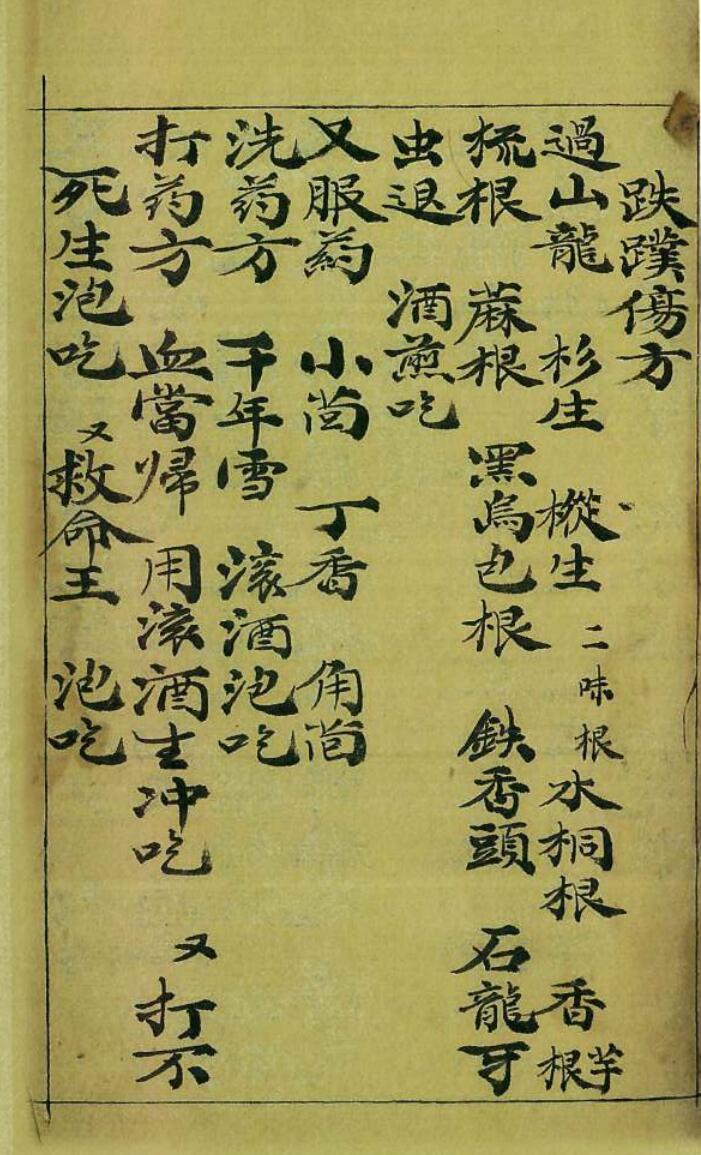 跌蹼傷方
過山龍 杉生 樅生 二味根 水桐根 香芋根
梳根 蔴根 黑烏包根 鉄香頭 石龍牙
虫退 酒煎吃
又服药 小茴 丁香 角茴
洗药方 千年雪 滚酒泡吃
打药方 血當帰 用滚酒生冲吃 又打不
死生泡吃 又救命王 泡吃